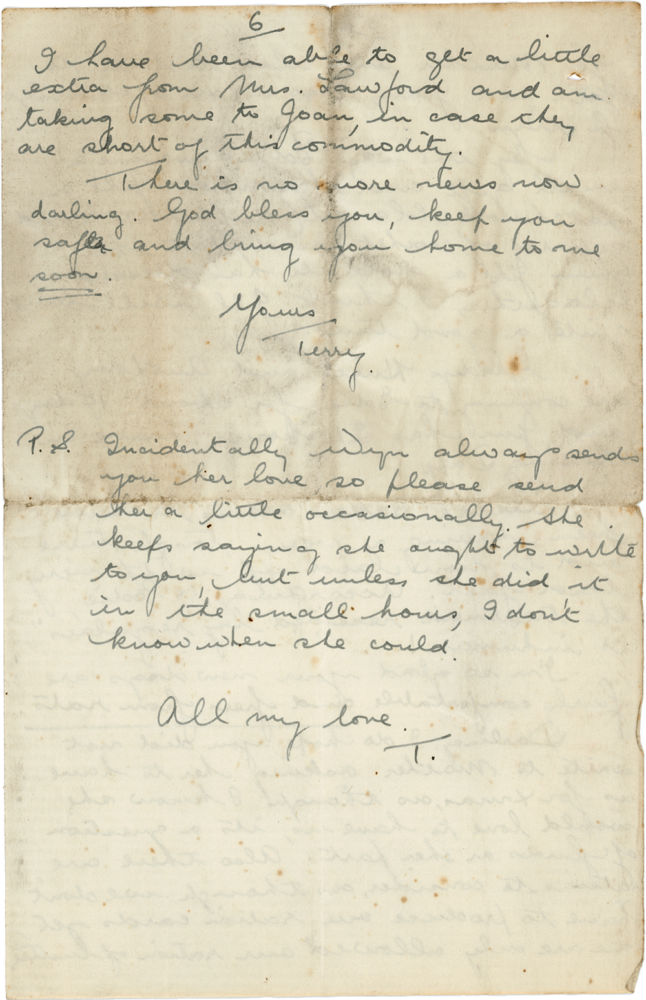 6
I have been able to get a little
extra from Mrs. Lawford and am
taking some to Joan, in case they
are short of this commodity.
There is no more news now
darling. God bless you, keep you
safe and bring you home to me
soon.
Yours
Terry.
P.S. Incidentally Wyn always sends
you her love, so please send
her a little occasionally. She
keeps saying she ought to write
to you, but unless she did it
in the small hours, I don't
know when she could.
All my love.
T.